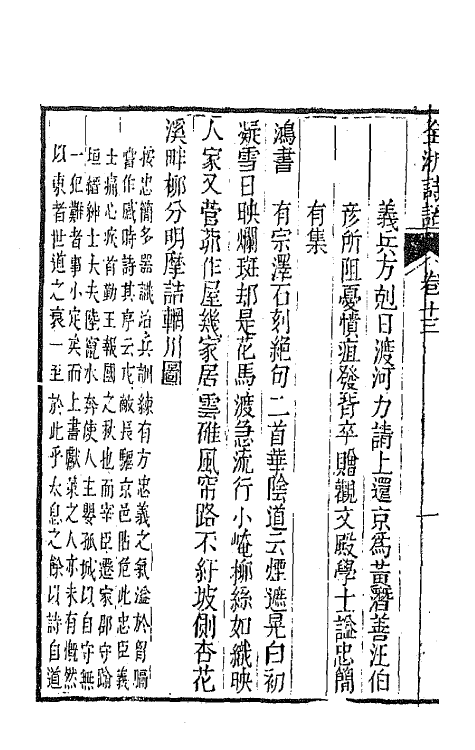 全浙詩話 卷十三 一
義兵方剋日渡河力請上還京爲黃潛善汪伯
彦所阻憂憤疽發背卒贈觀文殿學士諡忠簡
有集
鴻書 有宗澤石刻絶句二首華陰道云煙遮晃白初
疑雪日映爛斑却是花馬渡急流行小崦柳絲如織映
人家又菅茆作屋幾家居雲碓風帘路不紆坡側杏花
溪畔柳分明摩詰輞川圖
按忠簡多器識治兵訓練有方忠義之氣溢於眉睫
嘗作感時詩其序云戎敵長驅京邑阽危此忠臣義
士痛心疾首勤王報國之秋也而宰臣遷家郎守踰
垣搢紳士大夫陸竄水奔使人主嬰孤城以自守無
一犯難者事小定矣而上書獻策之人亦未有慨然
以東者世道之衰一至於此乎太息之餘以詩自道